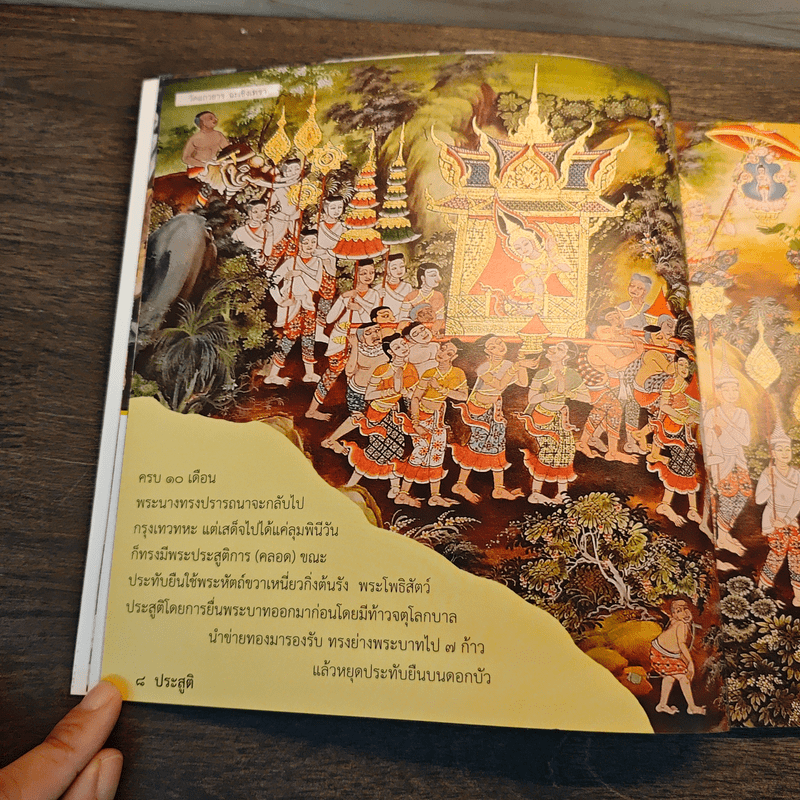 วัดเกาลาร ฉะเชิงเทรา
ครบ ๑๐ เดือน
พระนางทรงปรารถนาจะกลับไป
กรุงเทวทหะ แต่เสด็จไปได้แค่ลุมพินีวัน
ก็ทรงมีพระประสูติการ (คลอด) ขณะ
ประทับยืนใช้พระหัตถ์ขวาเหนี่ยวกิ่งต้นรัง พระโพธิสัตว์
ประสูติโดยการยื่นพระบาทออกมาก่อนโดยมีท้าวจตุโลกบาล
นำข่ายทองมารองรับ ทรงย่างพระบาทไป ๗ ก้าว
แล้วหยุดประทับยืนบนดอกบัว
๘ ประสูติ